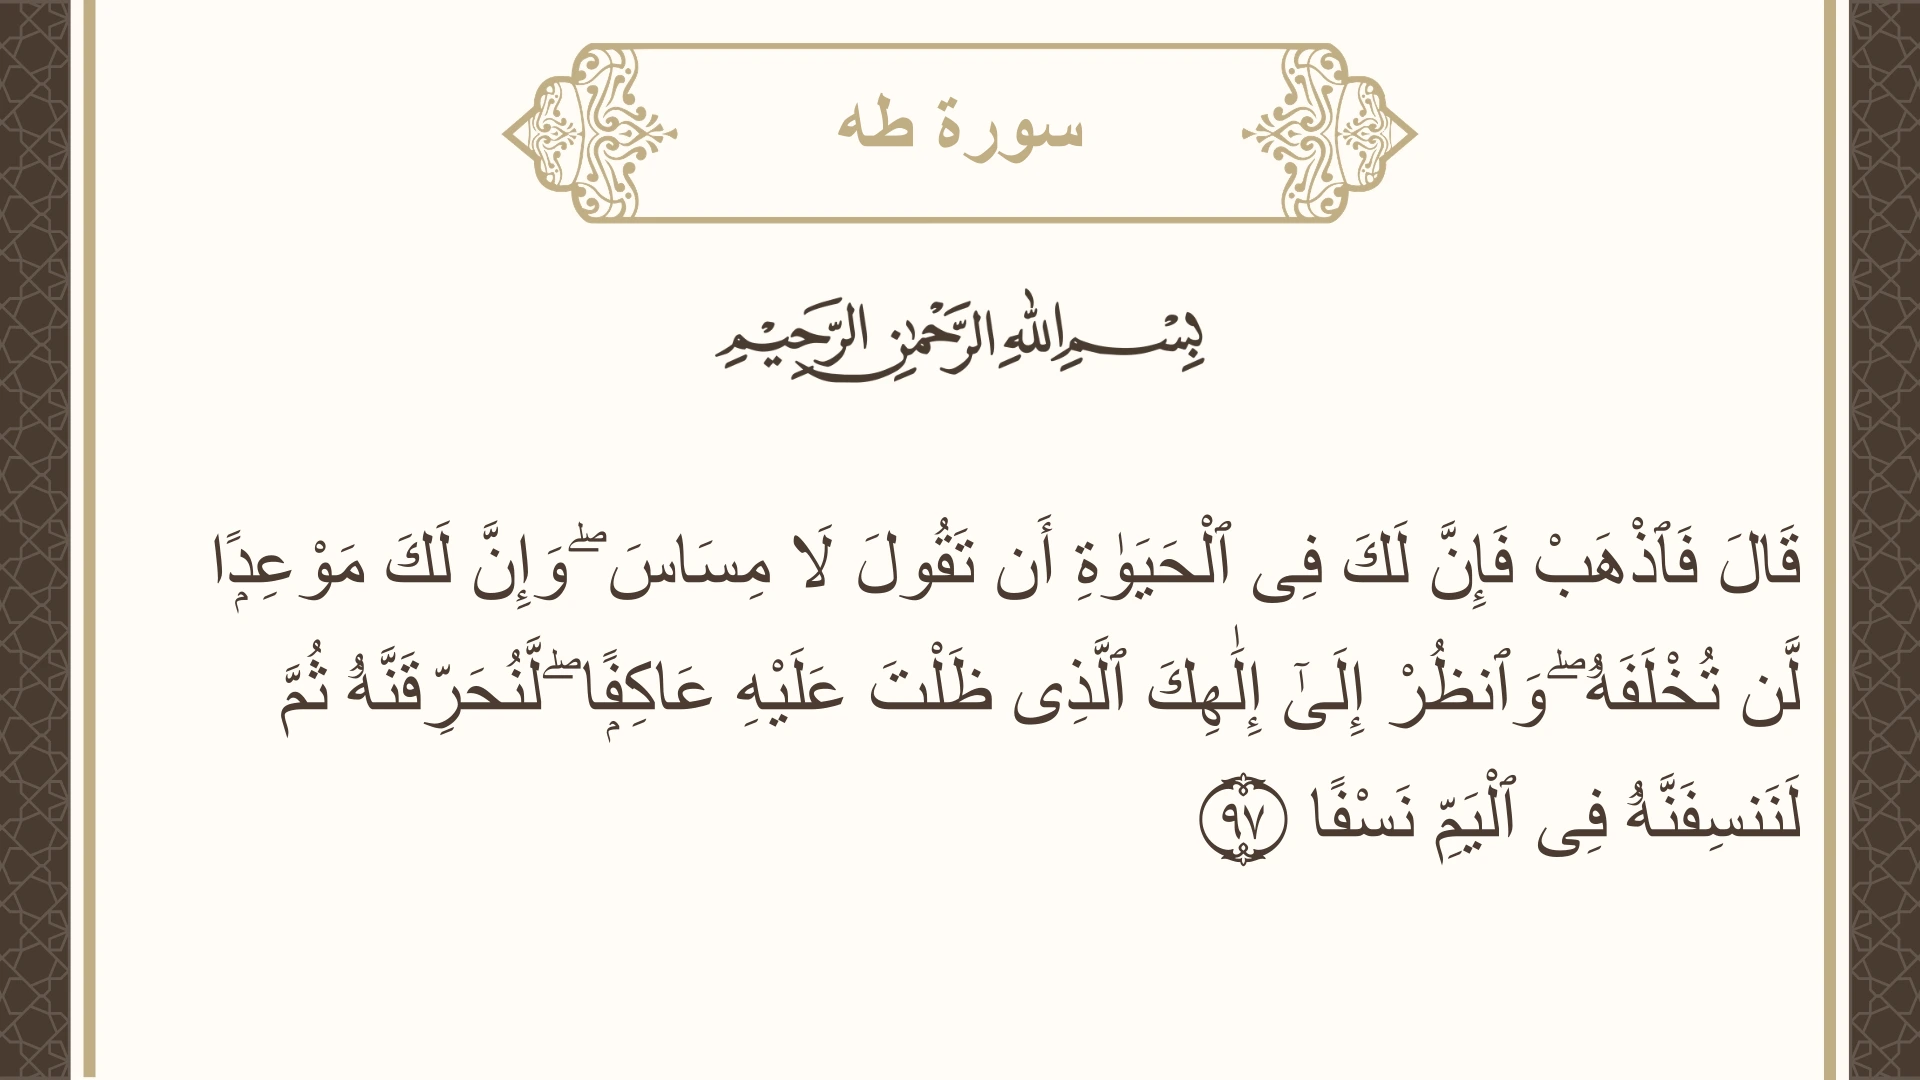 سورة طه
بِسْمِ اللهِ الرَّحْمٰنِ الرَّحِيْمِ
قَالَ فَٱذْهَبْ فَإِنَّ لَكَ فِى ٱلْحَيَوٰةِ أَن تَقُولَ لَا مِسَاسَ ۖ وَإِنَّ لَكَ مَوْعِدًۭا
لَّن تُخْلَفَهُۥ ۖ وَٱنظُرْ إِلَىٰٓ إِلَٰهِكَ ٱلَّذِى ظَلْتَ عَلَيْهِ عَاكِفًۭا ۖ لَّنُحَرِّقَنَّهُۥ ثُمَّ
لَنَنسِفَنَّهُۥ فِى ٱلْيَمِّ نَسْفًا ٩٧